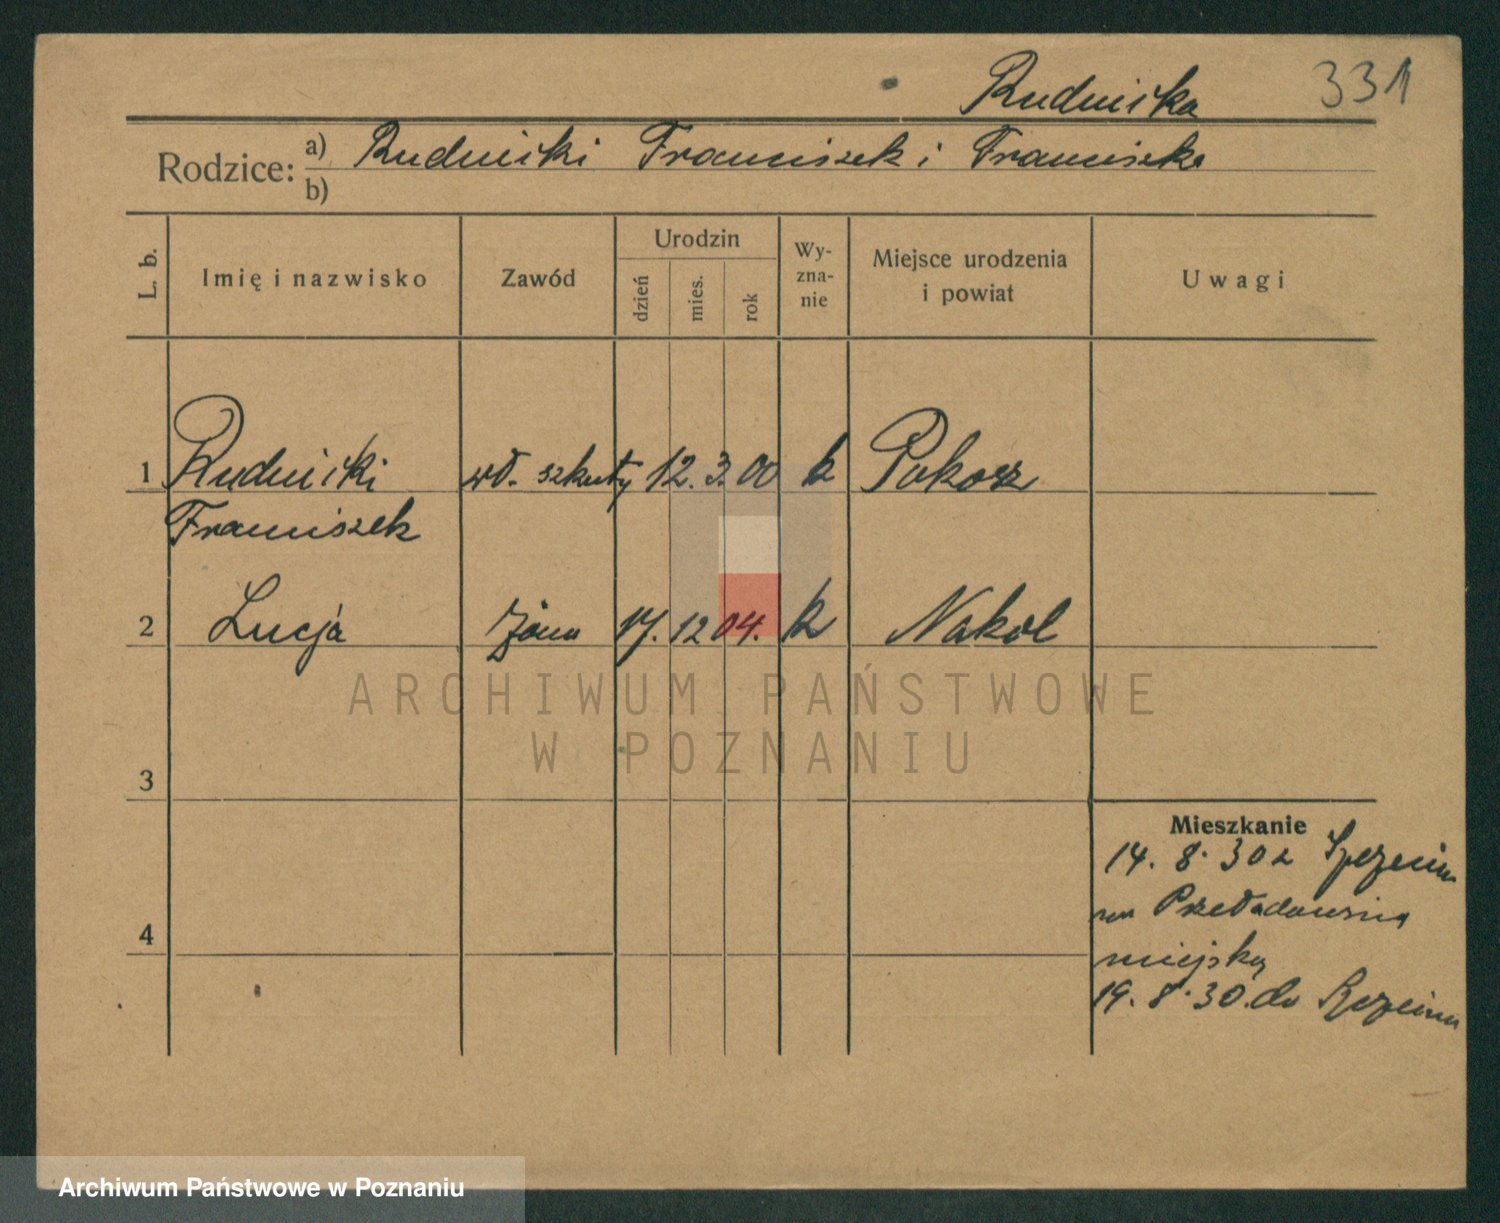 Rudnicka 331
Rodzice: a) Rudnicki Franciszek i Franciszka
b)
L. b. Imię i nazwisko Zawód Urodzin dzień mies. rok Wyznanie Miejsce urodzenia i powiat Uwagi
1 Rudnicki wł. szkuty 12. 3. 00 k Pakosz
Franciszek
2 Łucja żona 17. 12 04. k Nakol
ARCHIWUM PAŃSTWOWE
W POZNANIU
3
Mieszkanie
14. 8. 30 z
na Przeładownię
4
miejską
19. 8. 30. do
Archiwum Państwowe w Poznaniu